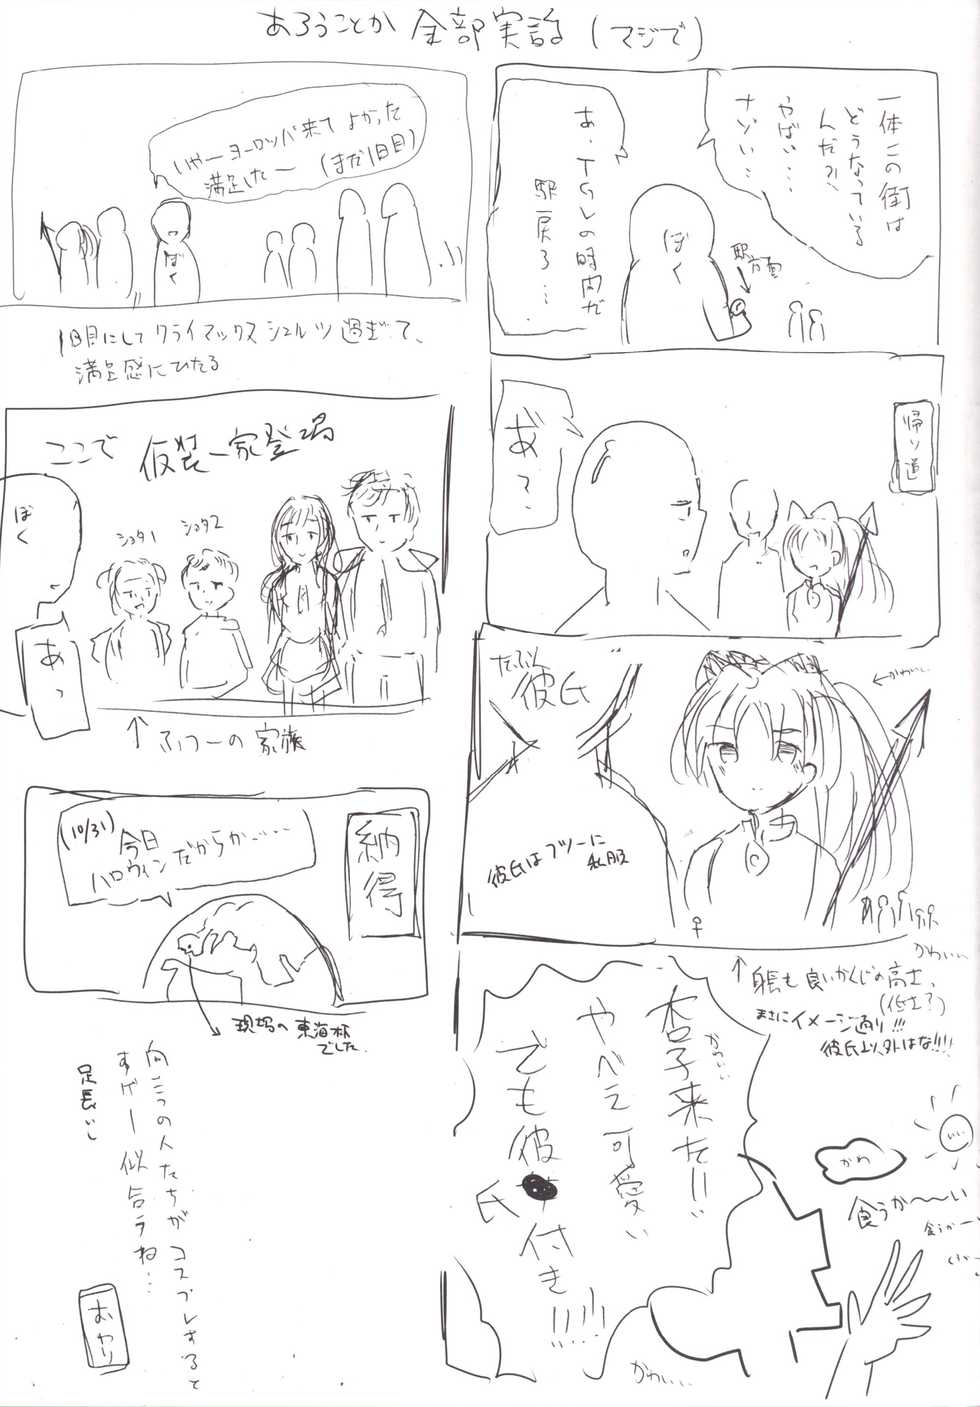 あろうことか全部実話(マジで)
一体この街は
どうなっている
んだ?!
やばい…
ナゾい…
ぼく
あ、TSLの時間だ
駅戻ろ…
帰り道
あ?
かわいー
たぶん
彼氏
彼氏はフツーに
私服
かわいい
身長も良いかんじの高さ、
(低さ?)
まさにイメージ通り!!!
彼氏以外はな!!!!
杏子来た!!
かわいい
やべえ可愛い
でも彼氏付き!!!!!
かわ
いい
食うか〜〜い
食うかー
かわいい…
いやーヨーロッパ来てよかった
満足した〜(まだ1日目)
ぼく
1日目にしてクライマックスシュルツ過ぎて、
満足感にひたる
ここで仮装一家登場
ぼく
ショタ1
ショタ2
あっ
↑ふつーの家族
納得
(10/31)
今日
ハロウィンだからか……
現場の東海林
でした
向こうの人たちがコスプレすると
すげー似合うね…
足長いし
おわり